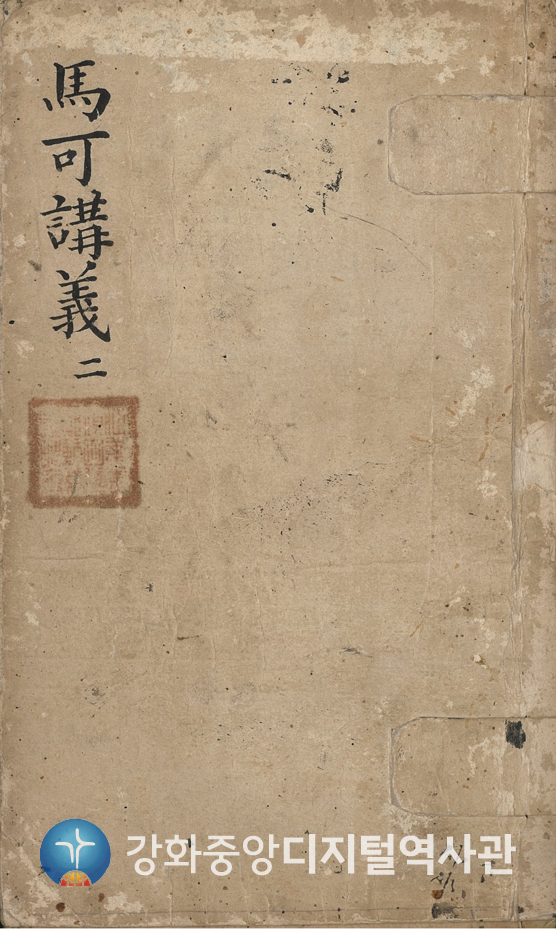 馬可講義 二
강화중앙디지털역사관